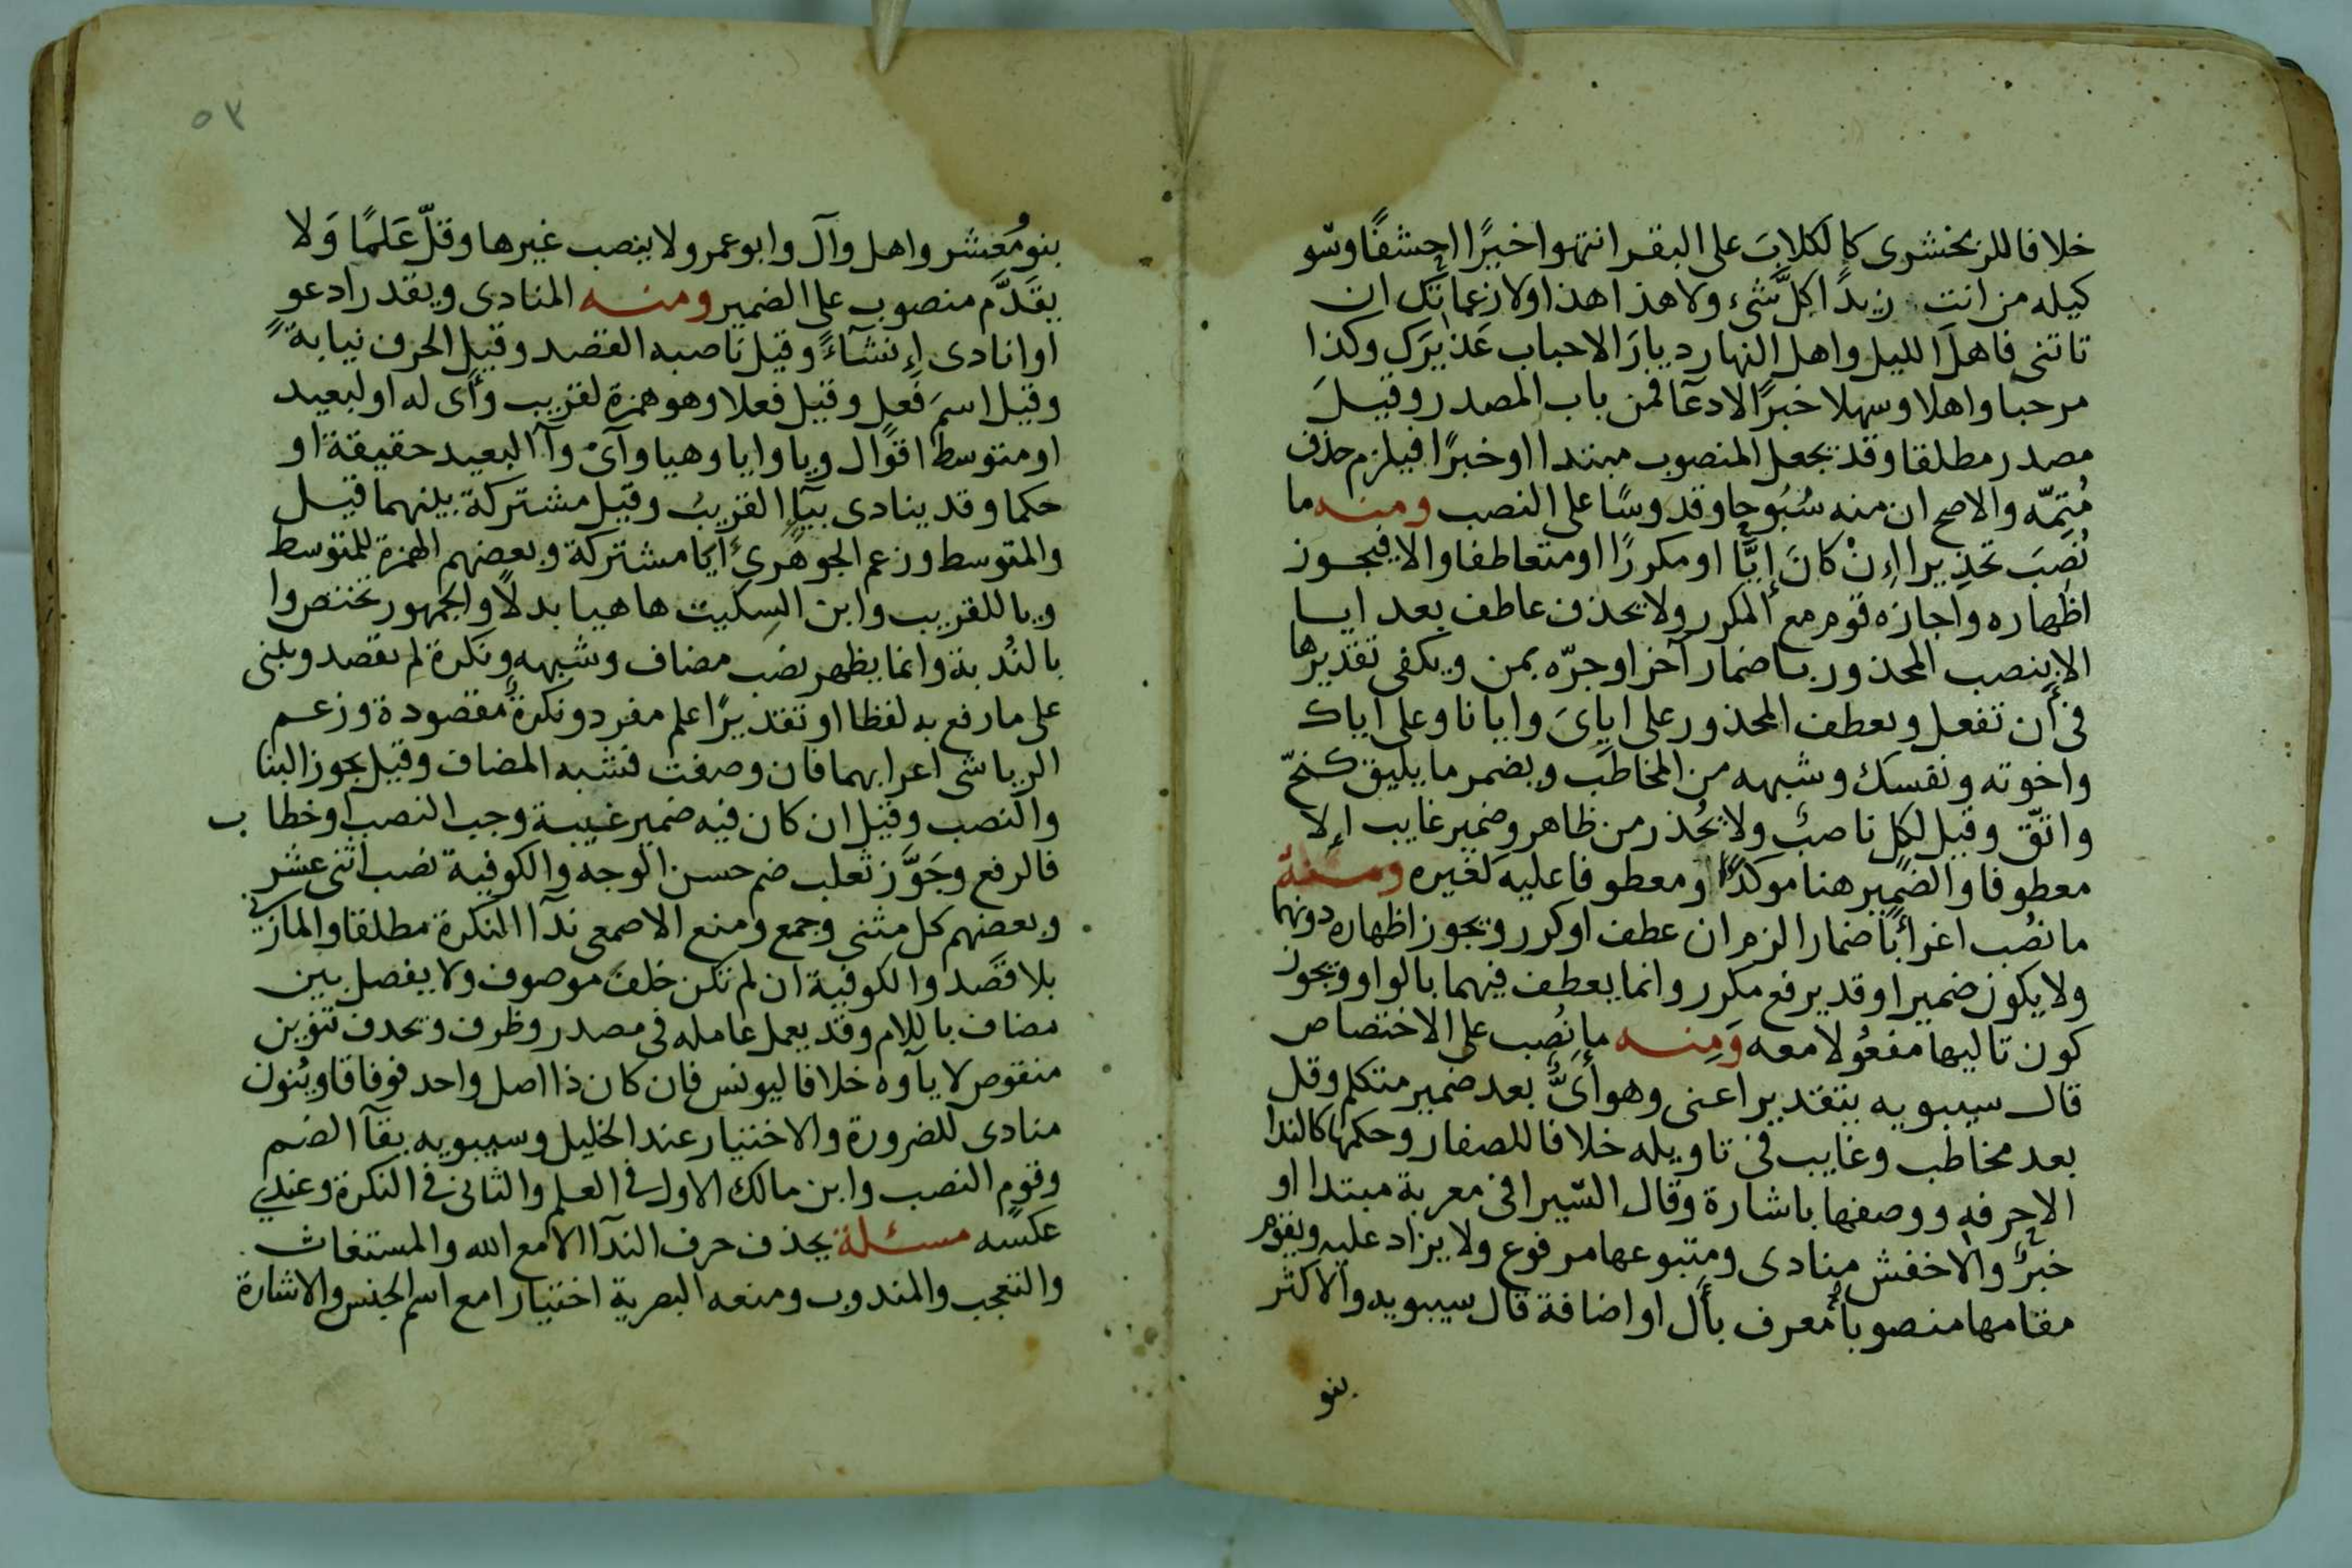 خلافا للزمخشرى كالكلابَ على البقر انتهوا خيرًا احشفًا وسو
كيله من انت زيدًا كلَّ شىء ولا هذا هذا ولا زعماتك ان
تاتنى فاهلَ الليل واهل النهار ديارَ الاحباب عَذيرَك وكذا
مرحبا واهلا وسهلا خبرًا لا دعآ فمن باب المصدر وقيل
مصدر مطلقا وقد يجعل المنصوب مبتدا او خبرًا فيلزم حذف
مُتِمّه والاصح ان منه سُبُوحا وقدوسًا على النصب ومنه ما
نُصِبَ تحذيرا اِنْ كانَ اِيَّا او مكررًا او متعاطفا والا فيجوز
اظهاره واجازه قوم مع المكرر ولا يحذف عاطف بعد ايا
الا بنصب المحذور باضمار آخر او جرّه بمن ويكفى تقديرها
فى أن تفعل ويعطف المحذور على اياىَ وايانا وعلى اياك
واخوته ونفسك وشبهه من المخاطب ويضمر ما يليق كنحّ
واتّق وقيل لكل ناصب ولا يُحذر من ظاهر وضمير غايب اِلا
معطوفا والضمير هنا موكدًا او معطوفا عليه كغيره ومنه
ما نصُب اغراءً باضمار الزم ان عطف او كرر ويجوز اظهاره دونهما
ولا يكون ضميرا وقد يرفع مكرر وانما يعطف فيهما بالواو ويجوز
كون تاليها مفعُولا معه وَمِنه ما نُصِب على الاختصاص
قال سيبويه بتقدير اعنى وهو أىُّ بعد ضمير متكلم وقل
بعد مخاطب وغايب فى تاويله خلافا للصفار وحكمها كالندا
الا حرفه ووصفها باشارة وقال السّيرافى معربة مبتدا او
خبرٌ والاخفش منادى ومتبوعها مرفوع ولا يزاد عليه ويقوم
مقامها منصوبا معرف بأل او اضافة قال سيبويه والاكثر
بنو
٥٣
بنو مُعَشر واهل وآل وابو عمرو لا ينصب غيرها وقلّ عَلمًا وَلا
يقَدَّم منصوب على الضمير ومنه المنادى ويقدر ادعو
او انادى اِنشآءً وقيل ناصبه القصد وقيل الحرف نيابةً
وقيل اسمَ فعل وقيل فعلا وهو همزة لقريب وأى له او لبعيد
او متوسط اقوال ويا وايا وهيا وآىْ وآ البعيد حقيقة او
حكما وقد ينادى بيآ القريبُ وقيل مشتركة بينهما قيل
والمتوسط وزعم الجوهرىُ أيا مشتركة وبعضهم الهمزة للمتوسط
ويا للقريب وابن السِكيت ها هيا بدلًا والجمهور تختص وا
بالنُدبة وانما يظهر نصَب مضاف وشبهه ونكرة لم تقصد ويبنى
على ما رفع به لفظا او تقديرًا علم مفرد ونكرةٌ مقصودة وزعم
الرياشى اعرابهما فان وصفت فشبه المضاف وقيل يجوز البنا
والنصب وقيل ان كان فيه ضمير غيبة وجب النصب او خطاب
فالرفع وجَوَّز ثعلب ضم حسن الوجه والكوفية نصب اثنى عشر
وبعضهم كل مثنى وجمع ومنع الاصمعى ندآ النكرة مطلقا والمازنى
بلا قصد والكوفية ان لم تكن خلفَ موصوف ولا يفصل بين
مضاف باللام وقد يعمل عامله فى مصدر وظرف ويحدف تنوين
منقوص لا يآوه خلافا ليونس فان كان ذا اصل واحد فوفاقا ويُنون
منادى للضرورة والاختيار عند الخليل وسيبويه بقآ الضم
وقوم النصب وابن مالك الاول فى العلم والثانى فى النكرة وعندى
عكسه مسئلة يحذف حرف الندآ الا مع الله والمستغاث
والتعجب والمندوب ومنعه البصرية اختيارا مع اسم الجنس والاشارة